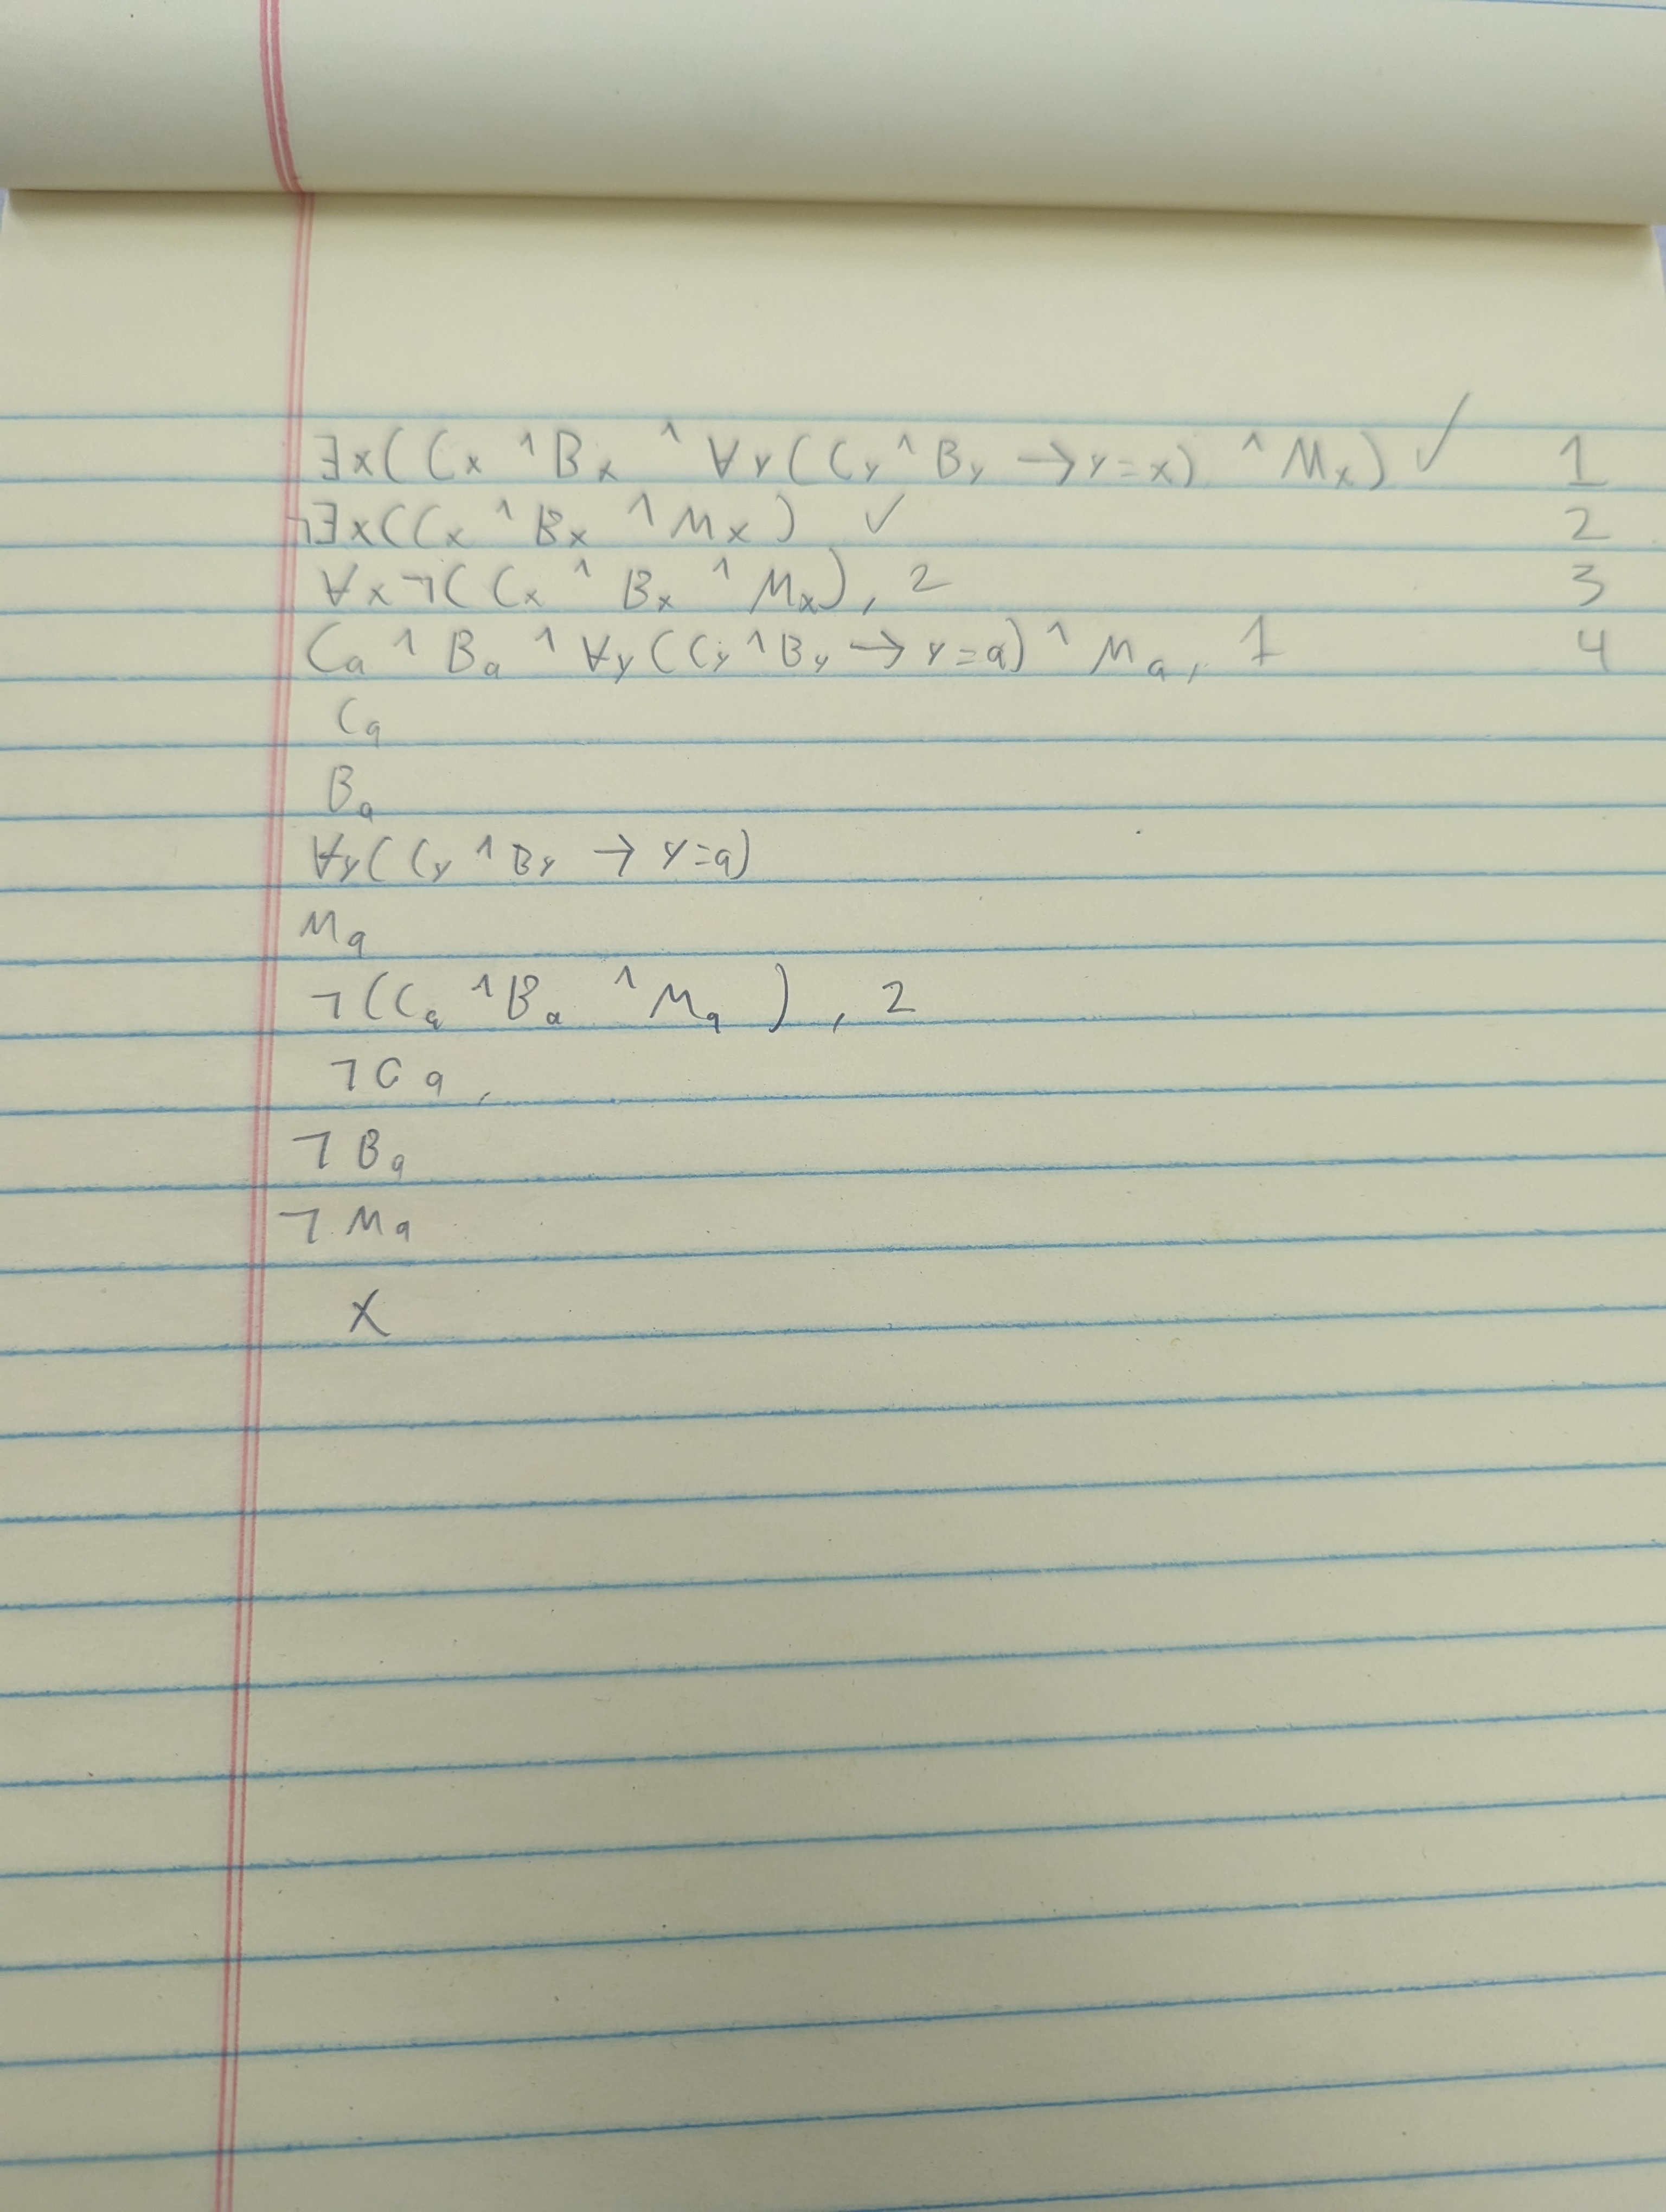 ∃x(Cx ∧ Bx ∧ ∀y(Cy ∧ By → y=x) ∧ Mx) ✓ 1
¬∃x(Cx ∧ Bx ∧ Mx) ✓ 2
∀x¬(Cx ∧ Bx ∧ Mx), 2 3
Ca ∧ Ba ∧ ∀y(Cy ∧ By → y=a) ∧ Ma, 1 4
Ca
Ba
∀y(Cy ∧ By → y=a)
Ma
¬(Ca ∧ Ba ∧ Ma), 2
¬Ca,
¬Ba
¬Ma
X